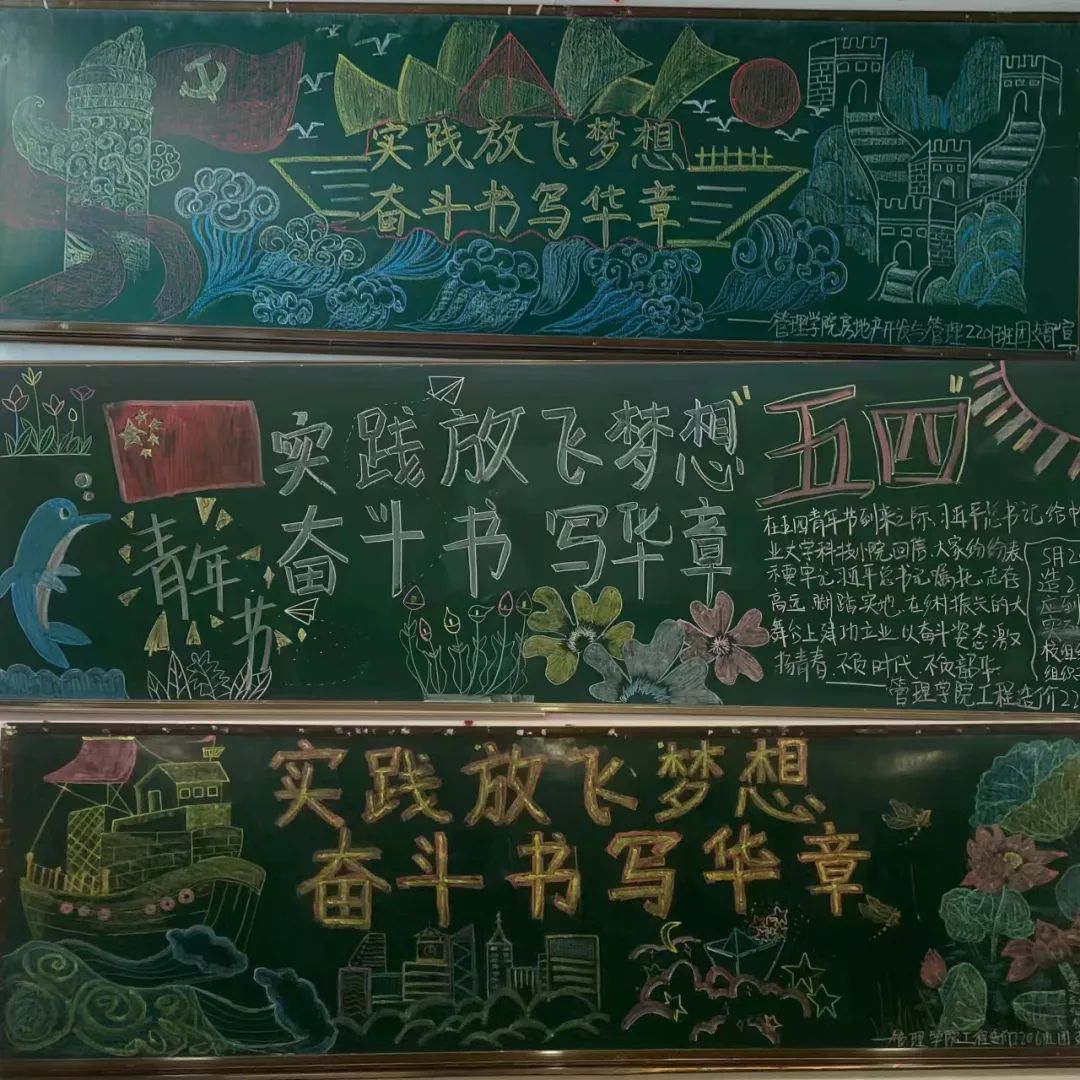 实践放飞梦想
奋斗书写华章
——管理学院房地产开发与管理2201班团支部宣
实践放飞梦想
奋斗书写华章
青年节
"五四"
在五四青年节到来之际,习近平总书记给中
业大学科技小院回信,大家纷纷表
示要牢记习近平总书记嘱托,志存
高远、脚踏实地,在乡村振兴的大
舞台上建功立业,以奋斗姿态激
扬青春,不负时代,不负韶华
——管理学院工程造价22
5月2
造2
应到
实到
校组织
组织
实践放飞梦想
奋斗书写华章
——管理学院工程造价2206班团支